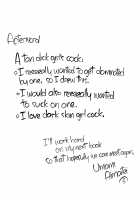 Afterword
A tan dick girl's cock:
• I reseeally wanted to get dominated
by one, so I drew this.
• I would also reseeeally wanted
to suck on one.
• I love dark skin girl cock.
I'll work hard
on my next book
so that hopefully we can meet again.